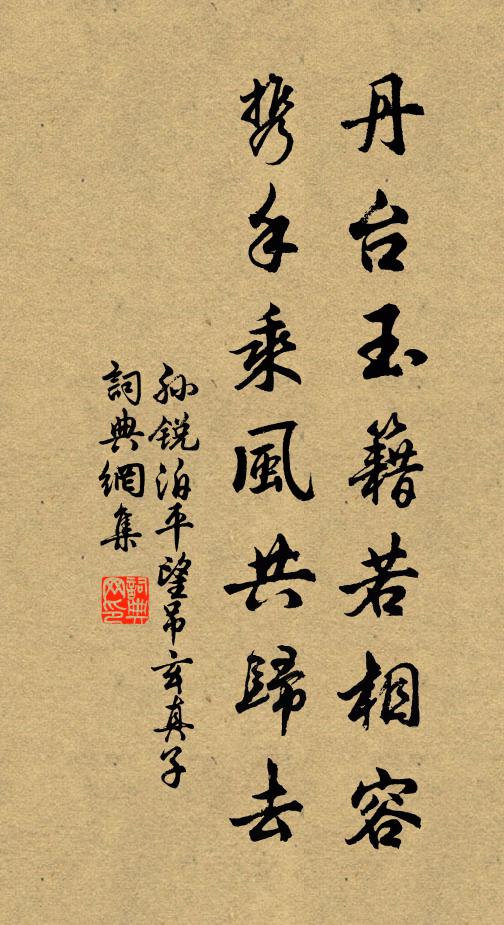 丹台玉籍若相容
携手乘風共歸去
孙锐泊平望吊玄真子
詞典網集
詞典网印